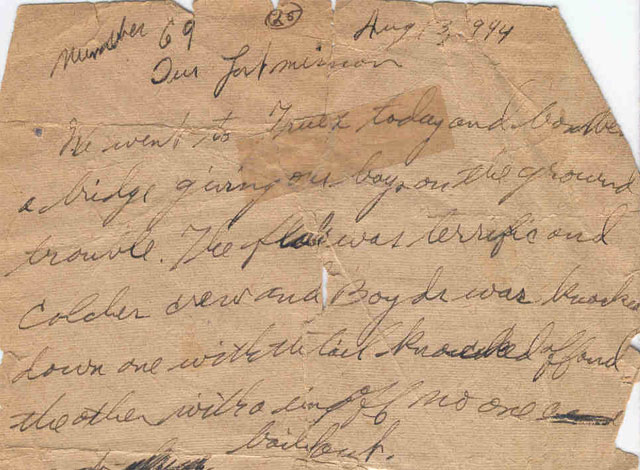 (25)
Number 69 Aug 3, 944
Our last mission
We went to today and bombe
a bridge giving our boys on the ground
trouble. The flak was terrific and
Colcher crew and Boyds was knocked
down one with the tail knocked off and
the other with a wing off no one
bailed out.